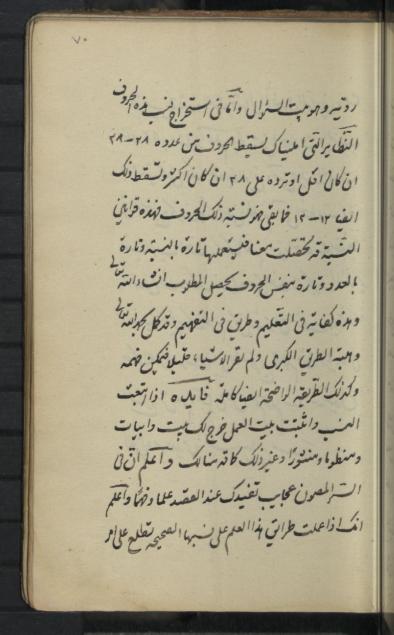 ٧٠
رديته وهو بيت السؤال واما في استخراج نسب هذه الحروف
النظاير التي امليناك يسقط الحروف من عدده ٢٨-٢٨
ان كان اقل او ترده على ٢٨ ان كان اكثر وتسقط ذلك
ايضا ١٢-١٢ فما بقي فهو نسبة ذلك الحروف فهذه قوانين
النسبة قد تحصلت معنا فنستعملها تارة بالنسبة وتارة
بالعدد وتارة بنفس الحروف يحصل المطلوب ان شاء الله تعالى
وهذه كفاية في التعليم وطريق في التفهيم وقد كمل بحمد الله تعالى
وهيبة الطريق الكبرى ولم نقر الاشياء فليمكن فهمه
وكذلك الطريقة الواضحة ايضا كاملة فايده اذا اتبعت
النسب واثبتت بيت العمل خرج لك بيت وابيات
ومنظوما ومنثورا وغير ذلك كافة هنالك واعلم ان في
السر المصون عجايب تفيدك عند القصد علما وفهما واعلم
انك اذا عملت طرايق هذا العلم على نسبها الصحيحة تطلع على امر